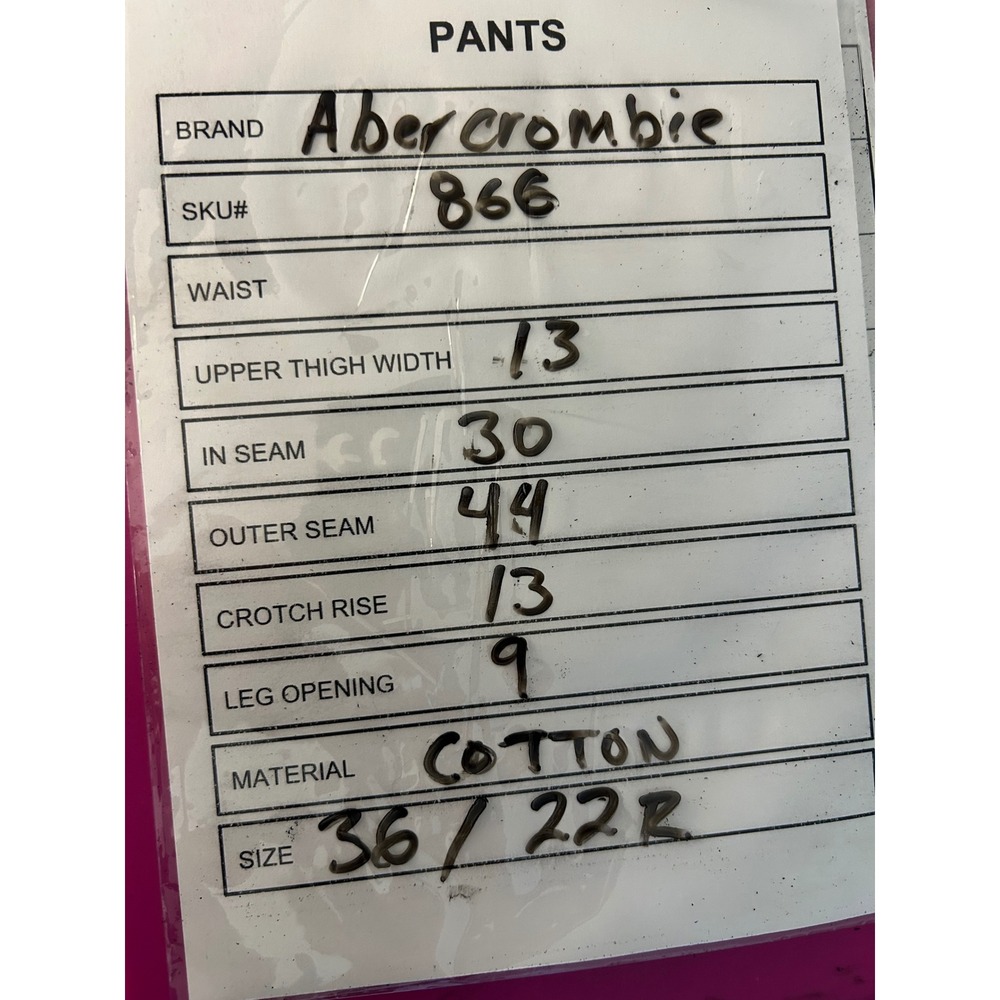 PANTS
BRAND Abercrombie
SKU# 866
WAIST
UPPER THIGH WIDTH 13
IN SEAM 30
OUTER SEAM 44
CROTCH RISE 13
LEG OPENING 9
MATERIAL COTTON
SIZE 36 / 22R